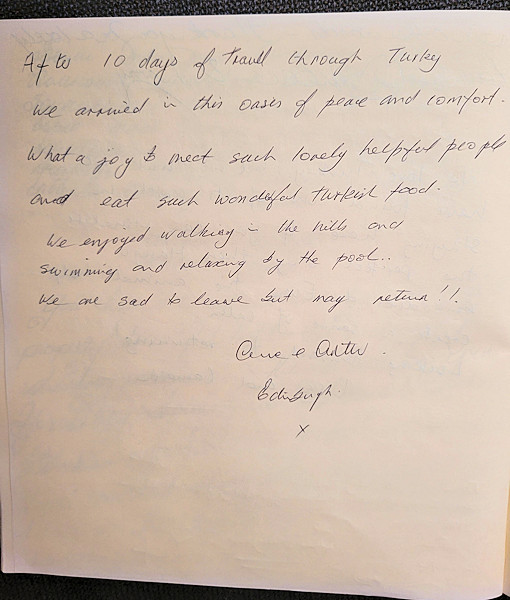 After 10 days of travel through Turky
we arrived in this oasis of peace and comfort.
What a joy to meet such lovely helpful people
and eat such wonderful turkish food.
We enjoyed walking in the hills and
swimming and relaxing by the pool..
We are sad to leave but may return!!.
Edinburgh.
x